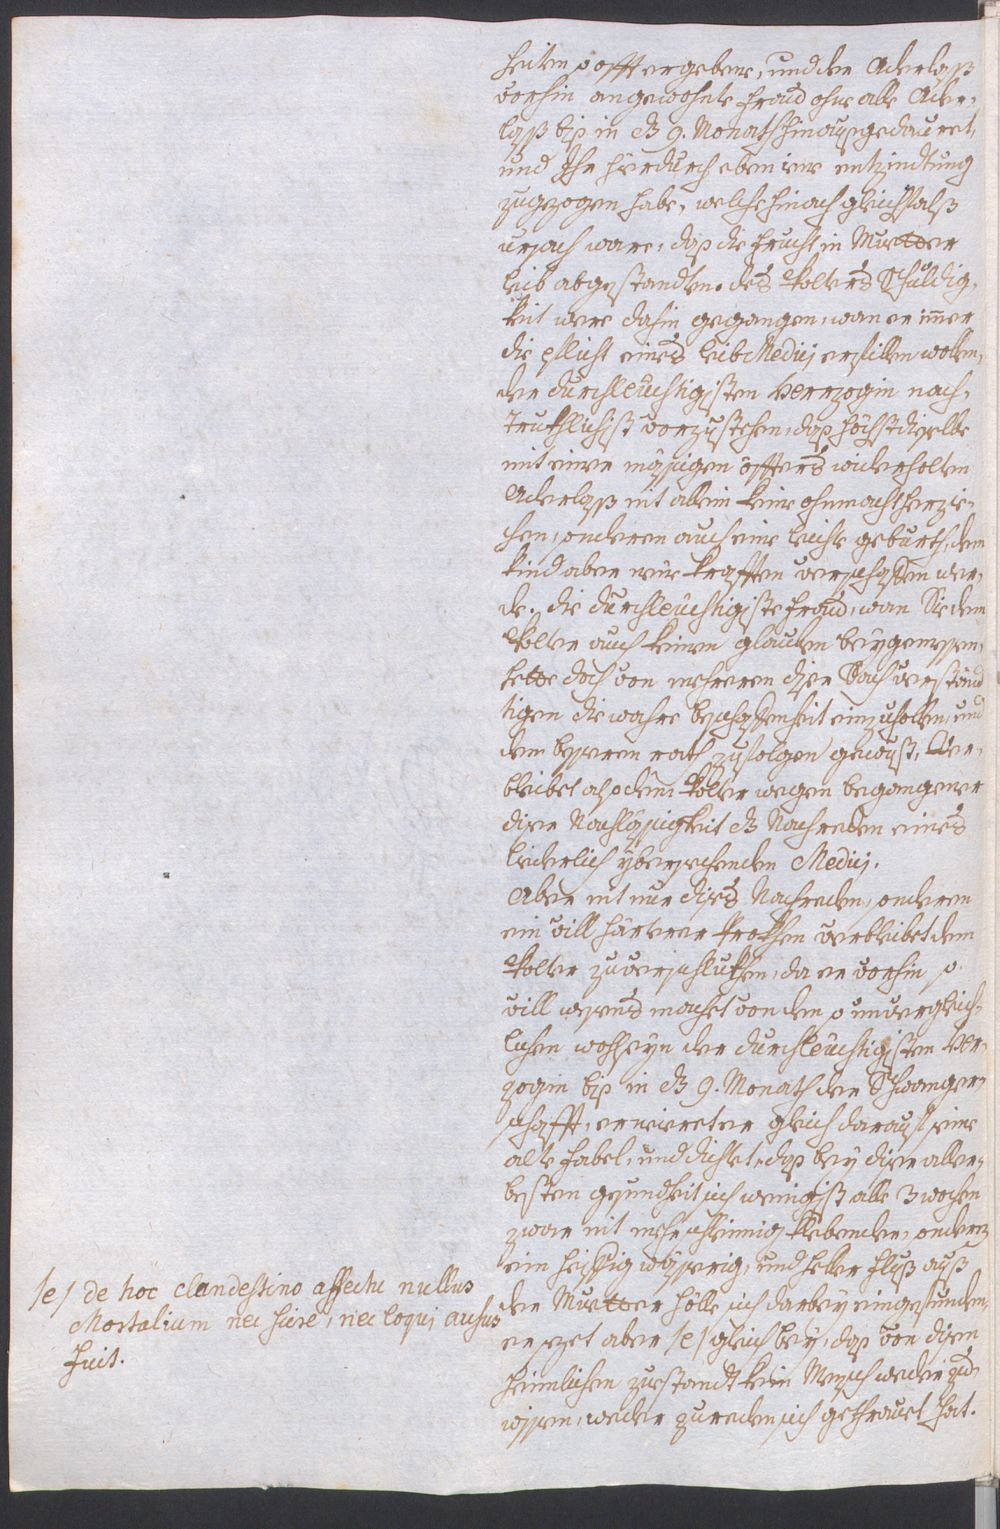 heiten so offt ergebene, und der Aderlaß
vorhin angewohnte fraud ohne alle Ader-
laß biß in dz 9. Monath hinauß gedauret,
und Ihr hierdurch eben eine entzindtung
zugezogen habe, welche hinach gleichfalß
ursach ware, daß die frucht in Muetter
leib abgestandten. des Kolters Schuldig-
keit were dahin gegangen, wan er im̄er
die pflicht eines leib Medici erfillen wollen,
der durchleüchtigisten Herzogin nach-
truckhlichist vorzustehen, daß höchst dieselbe
mit einer mässigen öffters widerholten
Aderlaß nit allein keine ohnmacht herzie-
hen, sonderen auch eine leichte geburth, dem
kind aber mehr kräfften verschaffen wer-
de. die durchleüchtigiste fraud, wan Sie dem
Kolter auch keinen glauben beygemessen,
hette doch von mehreren diser Sach verständ
tigen die wahre beschaffenheit einzuhollen, und
dem besseren rath zufolgen gewust. Ver-
bleibet also dem Kolter wegen begangener
diser Nachlässigkeit dz Nachreden eines
liederlich ybersechenden Medici.
Aber nit nur dises Nachreden, sonderen
ein vill härterer brockhen verbleibet dem
Kolter zuverschluckhen, da er vorhin so
vill wesens machet von dem so unvergleich-
lichen wohlseyn der durchleüchtigisten Her-
zogin biß in dz 9. Monath der Schwanger-
schafft, erneieret er gleich darauf seine
alte fabel, und dichtet, daß bey diser aller-
besten gesundheit sich wenigist alle 3 wochen
zwar nit mehr schleimig klebender, sonderen
ein hizig wässerig, und heller fluß auß
der Muetter hölle sich darbey eingefunden,
er sezet aber /e/ gleich bey, daß von disen
heimlichen zuestandt kein Mensch weder zu
wissen, weder zu reden sich gethrauet hat.
/e/ de hoc clandestino affectu nullus
Mortalium nec scire, nec loqui ausus
fuit.